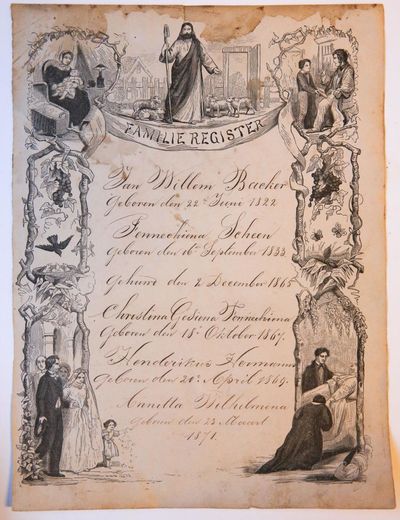 FAMILIE REGISTER
Jan Willem Backer
Geboren den 22e Juni 1822
Fennechiena Scheen
Geboren den 16e September 1833.
Gehuwd den 2 December 1865
Christina Gesiena Fennechiena
Geboren den 18e Oktober 1867.
Henderikus Hermann
Geboren den 20e April 1869.
Annetta Wilhelmena
Geboren den 23 Maart
1871.